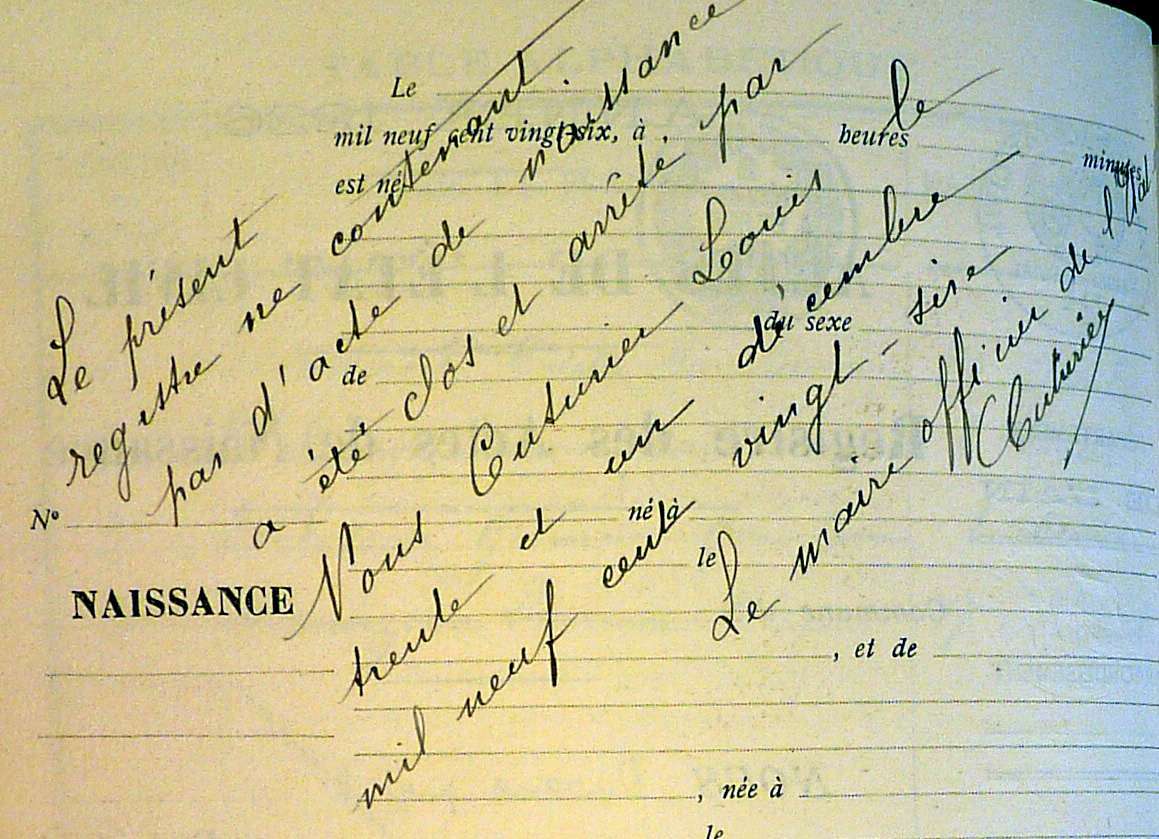 Le
mil neuf cent vingt-six, à , heures minutes
est né
du sexe
de
N°
né à
NAISSANCE
le
, et de
, née à
le
Le présent
registre ne contenant
pas d'acte de naissance
a été clos et arrêté par
Nous Cuturier Louis le
trente et un décembre
mil neuf cents vingt-sixe
Le maire officier de l'Etat
Cuturier